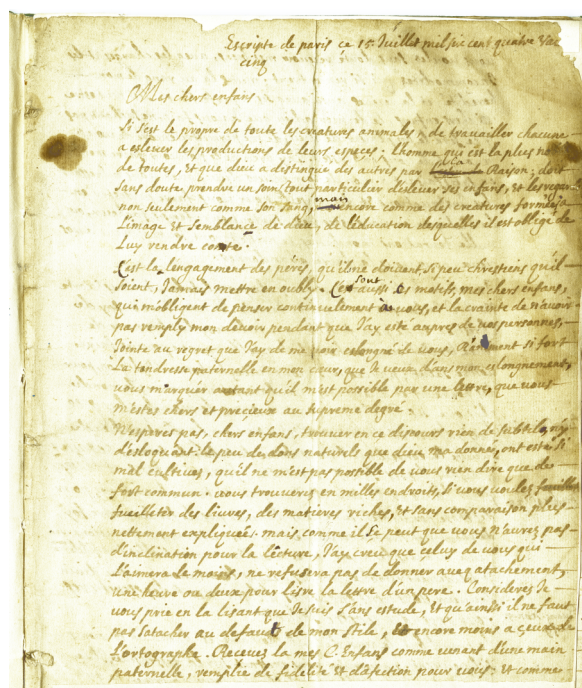 Escripte de paris ce 15. Juillet mil six cent quatre vint
cinq
Mes chers enfans
Si s'est le propre de toute les creatures animales de travailler chacune
a eslever les productions de leurs especes. L'homme qui est la plus
de toutes, et que dieu a distingué des autres par la Raison, doit
sans doute prendre un soin tout particulier d'eslever ses enfans, et les
non seulement comme son sang, mais encore comme des creatures formées a
L'image et semblance de dieu, de l'education desquelles il est obligé de
Luy rendre conte.
C'est la L'engagement des péres, qu'ilne doivent si peu chrestiens qu'il
soient, Jamais mettre en oubly. Ce sont aussi motifs, mes chers enfans,
qui m'obligent de penser continuelement a vous, et la crainte de n'avoir
pas remply mon devoir pendant que J'ay esté aupres de vos personnes,
Jointe au regret que J'ay de me voir eslongné de vous, si fort
La tendresse paternelle en mon cœur, que Je veux dans mon eslongnement,
vous marquer autant qu'il m'est possible par une lettre, que vous
m'estes chers et precieux au supreme degré.
N'esperes pas, chers enfans, trouver en ce discours rien de subtil, ny
d'esloquant. le peu de dons naturels que dieu m'a donné, ont esté si
mal cultivés, qu'il ne m'est pas possible de vous rien dire que de
fort commun. vous trouverez en milles endroits, si vous voulez
fueilleter des livres, des matieres riches, et sans comparaison plus
nettement expliquées. mais comme il se peut que vous n'aurez pas
d'inclination pour la lecture, J'ay creu que celuy de vous qui
L'aimera le moins, ne refusera pas de donner aveq atachement,
une heure ou deux pour lire la lettre d'un pere. Considerez Je
vous prie en la lisant que Je suis sans estude, et qu'ainsi il ne faut
pas s'atacher au defaut de mon stile, et encore moins a ceux de
L'ortographe. Recevez la mes C. Enfans comme venant d'une main
paternelle, remplie de fidelité et d'afection pour vous; et comme